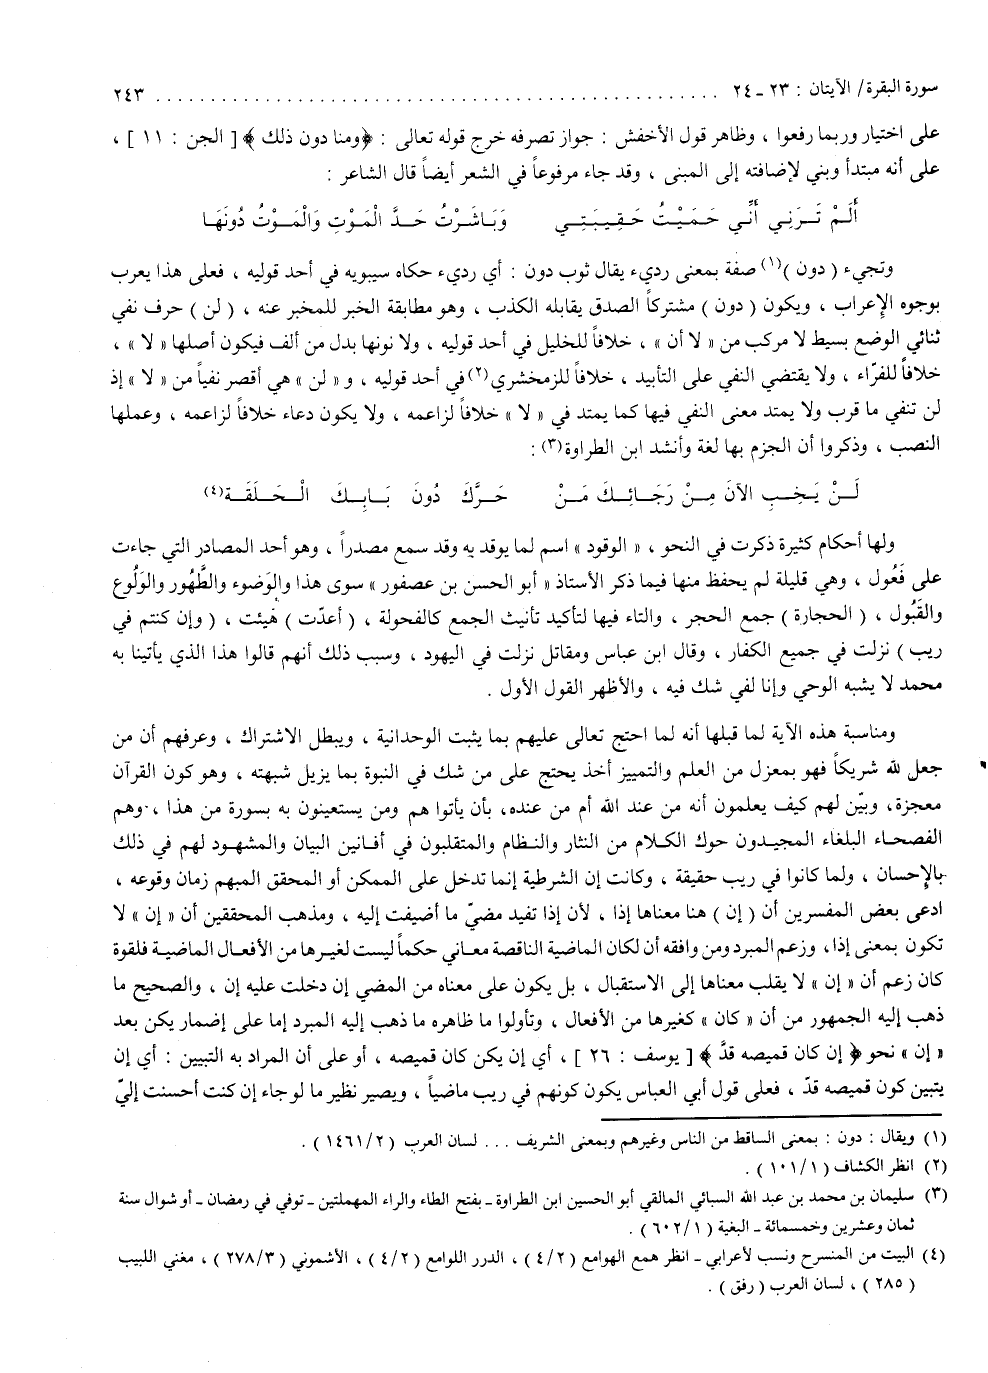 سورة البقرة/ الآيتان : ٢٣ ـ ٢٤ ................................................ ٢٤٣
على اختيار وربما رفعوا ، وظاهر قول الأخفش : جواز تصرفه خرج قوله تعالى : ﴿ومنا دون ذلك﴾ [ الجن : ١١ ] ،
على أنه مبتدأ وبني لإضافته إلى المبنى ، وقد جاء مرفوعاً في الشعر أيضاً قال الشاعر :
أَلَمْ تَـرَنِي أَنِّي حَمَيْتُ حَقِيبَتِـي وَبَاشَرْتُ حَدَّ الْمَوْتِ وَالْمَوْتُ دُونَهَا
وتجيء ( دون )(١) صفة بمعنى رديء يقال ثوب دون : أي رديء حكاه سيبويه في أحد قوليه ، فعلى هذا يعرب
بوجوه الإعراب ، ويكون ( دون ) مشتركاً الصدق يقابله الكذب ، وهو مطابقة الخبر للمخبر عنه ، ( لن ) حرف نفي
ثنائي الوضع بسيط لا مركب من « لا أن » ، خلافاً للخليل في أحد قوليه ، ولا نونها بدل من ألف فيكون أصلها « لا » ،
خلافاً للفرّاء ، ولا يقتضي النفي على التأبيد ، خلافاً للزمخشري(٢) في أحد قوليه ، و « لن » هي أقصر نفياً من « لا » إذ
لن تنفي ما قرب ولا يمتد معنى النفي فيها كما يمتد في « لا » خلافاً لزاعمه ، ولا يكون دعاء خلافاً لزاعمه ، وعملها
النصب ، وذكروا أن الجزم بها لغة وأنشد ابن الطراوة(٣) :
لَـنْ يَـخِـبِ الآنَ مِـنْ رَجَائِـكَ مَـنْ حَرَّكَ دُونَ بَـابِـكَ الْـحَـلَقَـة(٤)
ولها أحكام كثيرة ذكرت في النحو ، « الوقود » اسم لما يوقد به وقد سمع مصدراً ، وهو أحد المصادر التي جاءت
على فَعُول ، وهي قليلة لم يحفظ منها فيما ذكر الأستاذ « أبو الحسن بن عصفور » سوى هذا والوَضوء والطَّهُور والوَلُوع
والقَبُول ، ( الحجارة ) جمع الحجر ، والتاء فيها لتأكيد تأنيث الجمع كالفحولة ، ( أعدّت ) هُيئت ، ( وإن كنتم في
ريب ) نزلت في جميع الكفار ، وقال ابن عباس ومقاتل نزلت في اليهود ، وسبب ذلك أنهم قالوا هذا الذي يأتينا به
محمد لا يشبه الوحي وإنا لفي شك فيه ، والأظهر القول الأول .
ومناسبة هذه الآية لما قبلها أنه لما احتج تعالى عليهم بما يثبت الوحدانية ، ويبطل الاشتراك ، وعرفهم أن من
جعل لله شريكاً فهو بمعزل من العلم والتمييز أخذ يحتج على من شك في النبوة بما يزيل شبهته ، وهو كون القرآن
معجزة، وبيّن لهم كيف يعلمون أنه من عند الله أم من عنده، بأن يأتوا هم ومن يستعينون به بسورة من هذا ، وهم
الفصحاء البلغاء المجيدون حوك الكلام من النثار والنظام والمتقلبون في أفانين البيان والمشهود لهم في ذلك
بالإحسان ، ولما كانوا في ريب حقيقة ، وكانت إن الشرطية إنما تدخل على الممكن أو المحقق المبهم زمان وقوعه ،
ادعى بعض المفسرين أن ( إن ) هنا معناها إذا ، لأن إذا تفيد مضيّ ما أضيفت إليه ، ومذهب المحققين أن « إن » لا
تكون بمعنى إذا، وزعم المبرد ومن وافقه أن لكان الماضية الناقصة معاني حكماً ليست لغيرها من الأفعال الماضية فلقوة
كان زعم أن « إن » لا يقلب معناها إلى الاستقبال ، بل يكون على معناه من المضي إن دخلت عليه إن ، والصحيح ما
ذهب إليه الجمهور من أن « كان » كغيرها من الأفعال ، وتأولوا ما ظاهره ما ذهب إليه المبرد إما على إضمار يكن بعد
« إن » نحو ﴿ إن كان قميصه قدَّ ﴾ [ يوسف : ٢٦ ] ، أي إن يكن كان قميصه ، أو على أن المراد به التبيين : أي إن
يتبين كون قميصه قدّ ، فعلى قول أبي العباس يكون كونهم في ريب ماضياً ، ويصير نظير ما لو جاء إن كنت أحسنت إليّ
(١) ويقال : دون : بمعنى الساقط من الناس وغيرهم وبمعنى الشريف ... لسان العرب ( ١٤٦١/٢ ) .
(٢) انظر الكشاف ( ١٠١/١ ) .
(٣) سليمان بن محمد بن عبد الله السبائي المالقي أبو الحسين ابن الطراوة ـ بفتح الطاء والراء المهملتين ـ توفي في رمضان ـ أو شوال سنة
ثمان وعشرين وخمسمائة ـ البغية ( ٦٠٢/١ ) .
(٤) البيت من المنسرح ونسب لأعرابي ـ انظر همع الهوامع ( ٤/٢ ) ، الدرر اللوامع ( ٤/٢ ) ، الأشموني ( ٢٧٨/٣ ) ، مغني اللبيب
( ٢٨٥ ) ، لسان العرب ( رفق ) .